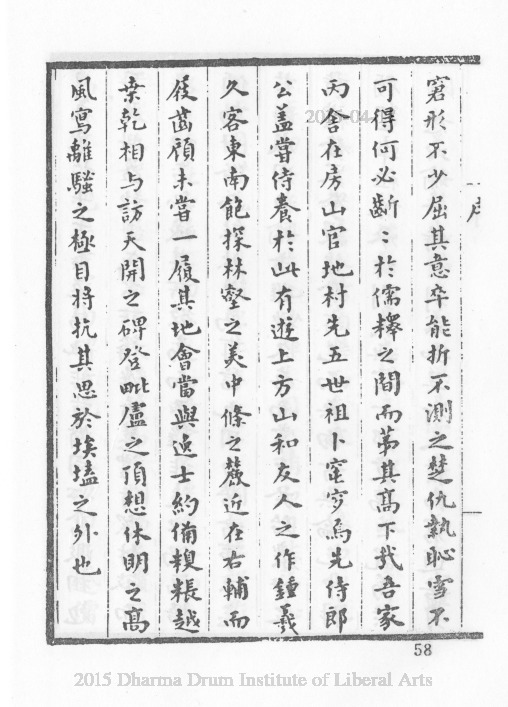 序
窘形不少屈其意卒能折不測之楚仇孰恥雪不
可得何必齗〻於儒釋之間而第其高下哉吾家
丙舍在房山官地村先五世祖卜窀穸焉先侍郎
公盖嘗侍養於此有遊上方山和友人之作鍾羲
久客東南飽探林壑之美中條之麓近在右輔而
屐齒顧未嘗一履其地會當與逸士約備糗粻越
桑乾相与訪天開之碑登毗盧之頂想休明之高
風寫離騷之極目將抗其思於埃壒之外也
58
2015 Dharma Drum Institute of Liberal Arts